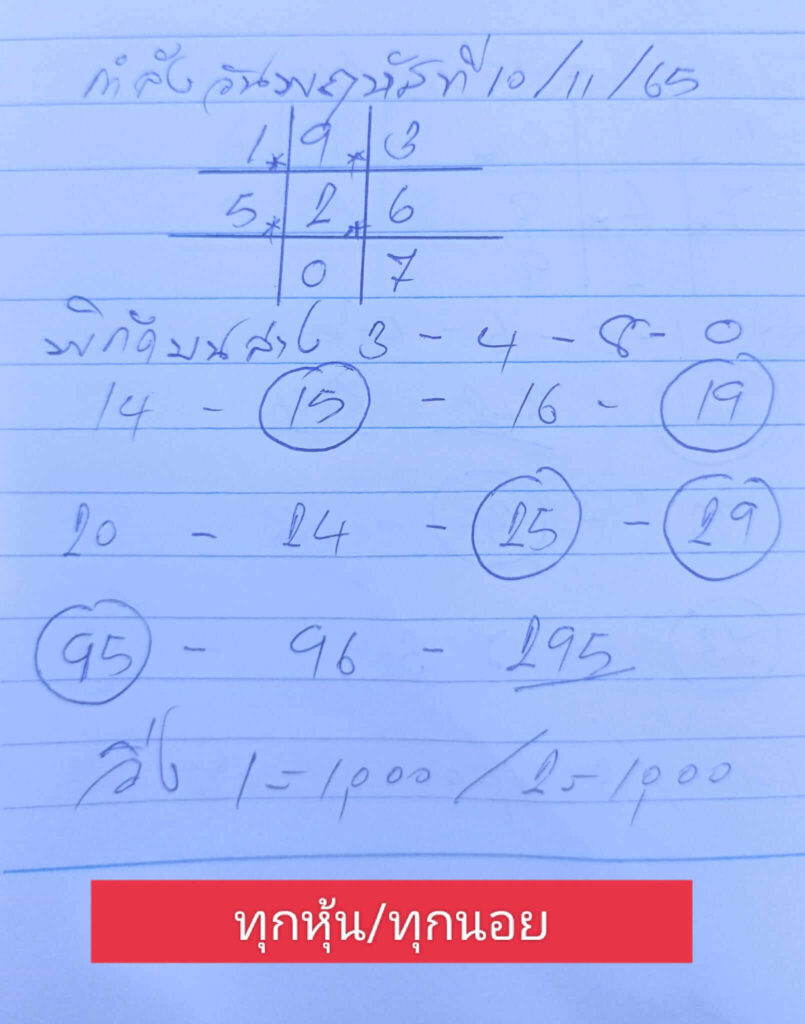 กำลังวันพฤหัสที่ 10/11/65
1 * 9 * 3
5 * 2 * 6
0 7
พิกัดบนล่าง 3 - 4 - 8 - 0
14 - 15 - 16 - 19
20 - 24 - 25 - 29
95 - 96 - 295
วิ่ง 1 = 1,000 / 2 = 1,000
ทุกหุ้น/ทุกนอย